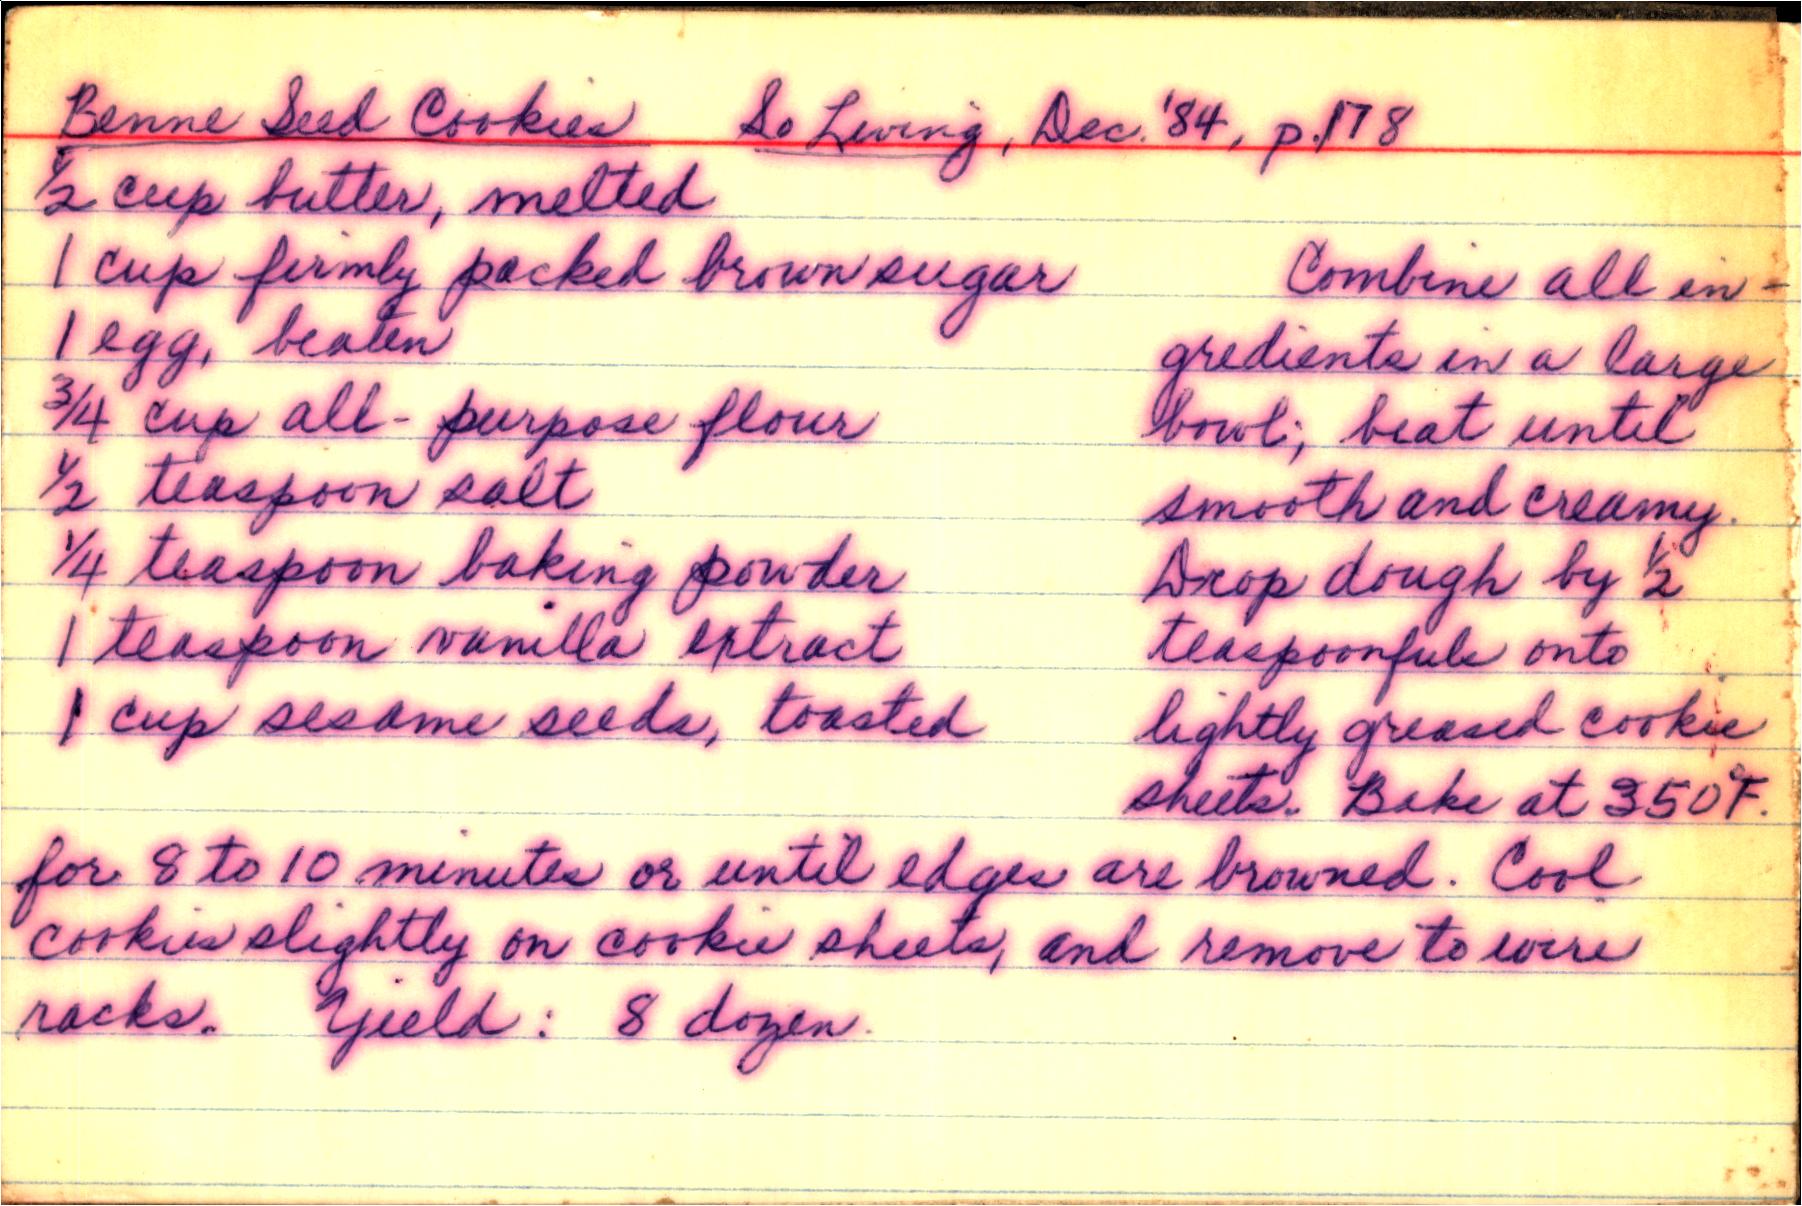 Benne Seed Cookies So Living, Dec. '84, p.178
1/2 cup butter, melted
1 cup firmly packed brown sugar
1 egg, beaten
3/4 cup all-purpose flour
1/2 teaspoon salt
1/4 teaspoon baking powder
1 teaspoon vanilla extract
1 cup sesame seeds, toasted
Combine all in-
gredients in a large
bowl; beat until
smooth and creamy.
Drop dough by 1/2
teaspoonfuls onto
lightly greased cookie
sheets. Bake at 350°F.
for 8 to 10 minutes or until edges are browned. Cool
cookies slightly on cookie sheets, and remove to wire
racks. Yield: 8 dozen.